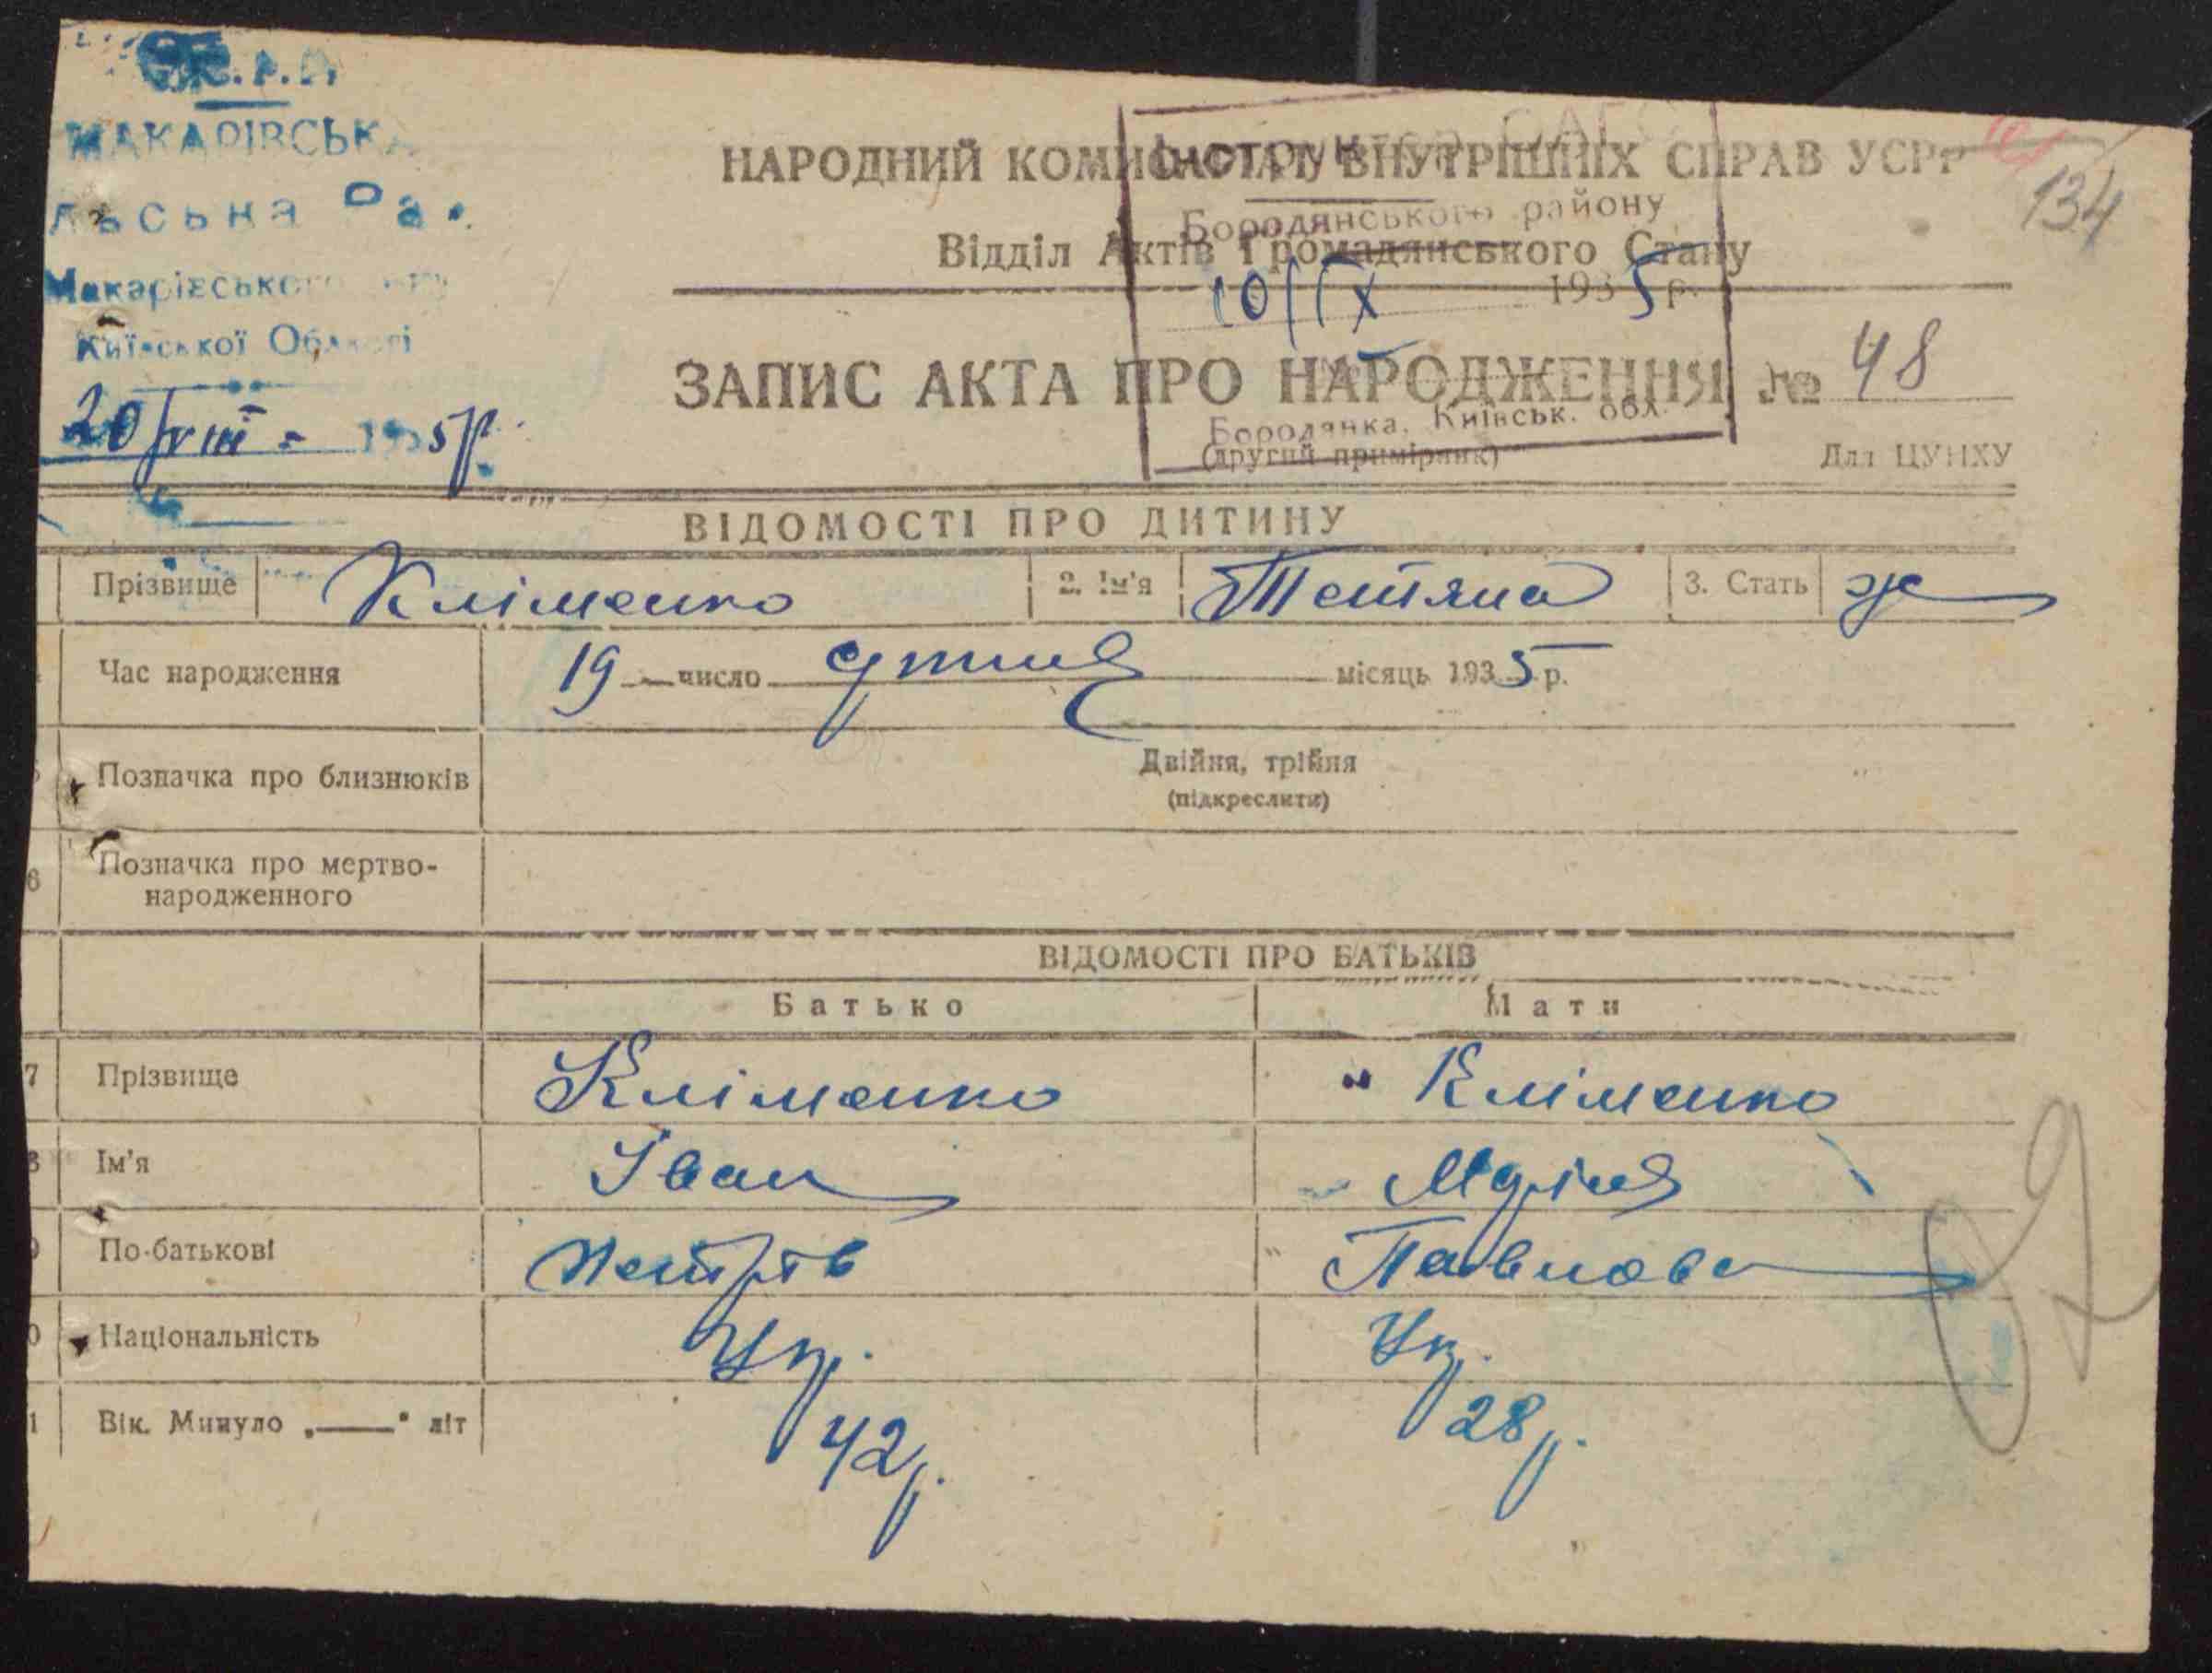 МАКАРІВСЬКА
Київської Області
20/VIII - 1935р.
НАРОДНИЙ КОМІСАРІАТ ВНУТРІШНІХ СПРАВ УСРР
134
Відділ Актів Громадянського Стану
Бородянського району
10/IX 1935 р.
ЗАПИС АКТА ПРО НАРОДЖЕННЯ № 48
Бородянка, Київськ. обл.
(другий примірник)
Для ЦУНХУ
ВІДОМОСТІ ПРО ДИТИНУ
Прізвище Кліменко 2. Ім'я Тетяна 3. Стать ж
Час народження 19 число місяць 1935 р.
Позначка про близнюків Двійня, трійня
(підкреслити)
6 Позначка про мертво-
народженного
ВІДОМОСТІ ПРО БАТЬКІВ
Батько Мати
7 Прізвище Кліменко " Кліменко
8 Ім'я Іван Марія
По-батькові Петров " Павлова
Національність Укр. Ук.
1 Вік. Минуло „——" літ 42 р. 28 р.